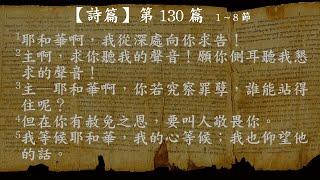 【詩篇】第 130 篇 1~8節
1耶和華啊，我從深處向你求告！
2主啊，求你聽我的聲音！願你側耳聽我懇
求的聲音！
3主─耶和華啊，你若究察罪孽，誰能站得
住呢？
4但在你有赦免之恩，要叫人敬畏你。
5我等候耶和華，我的心等候；我也仰望他
的話。